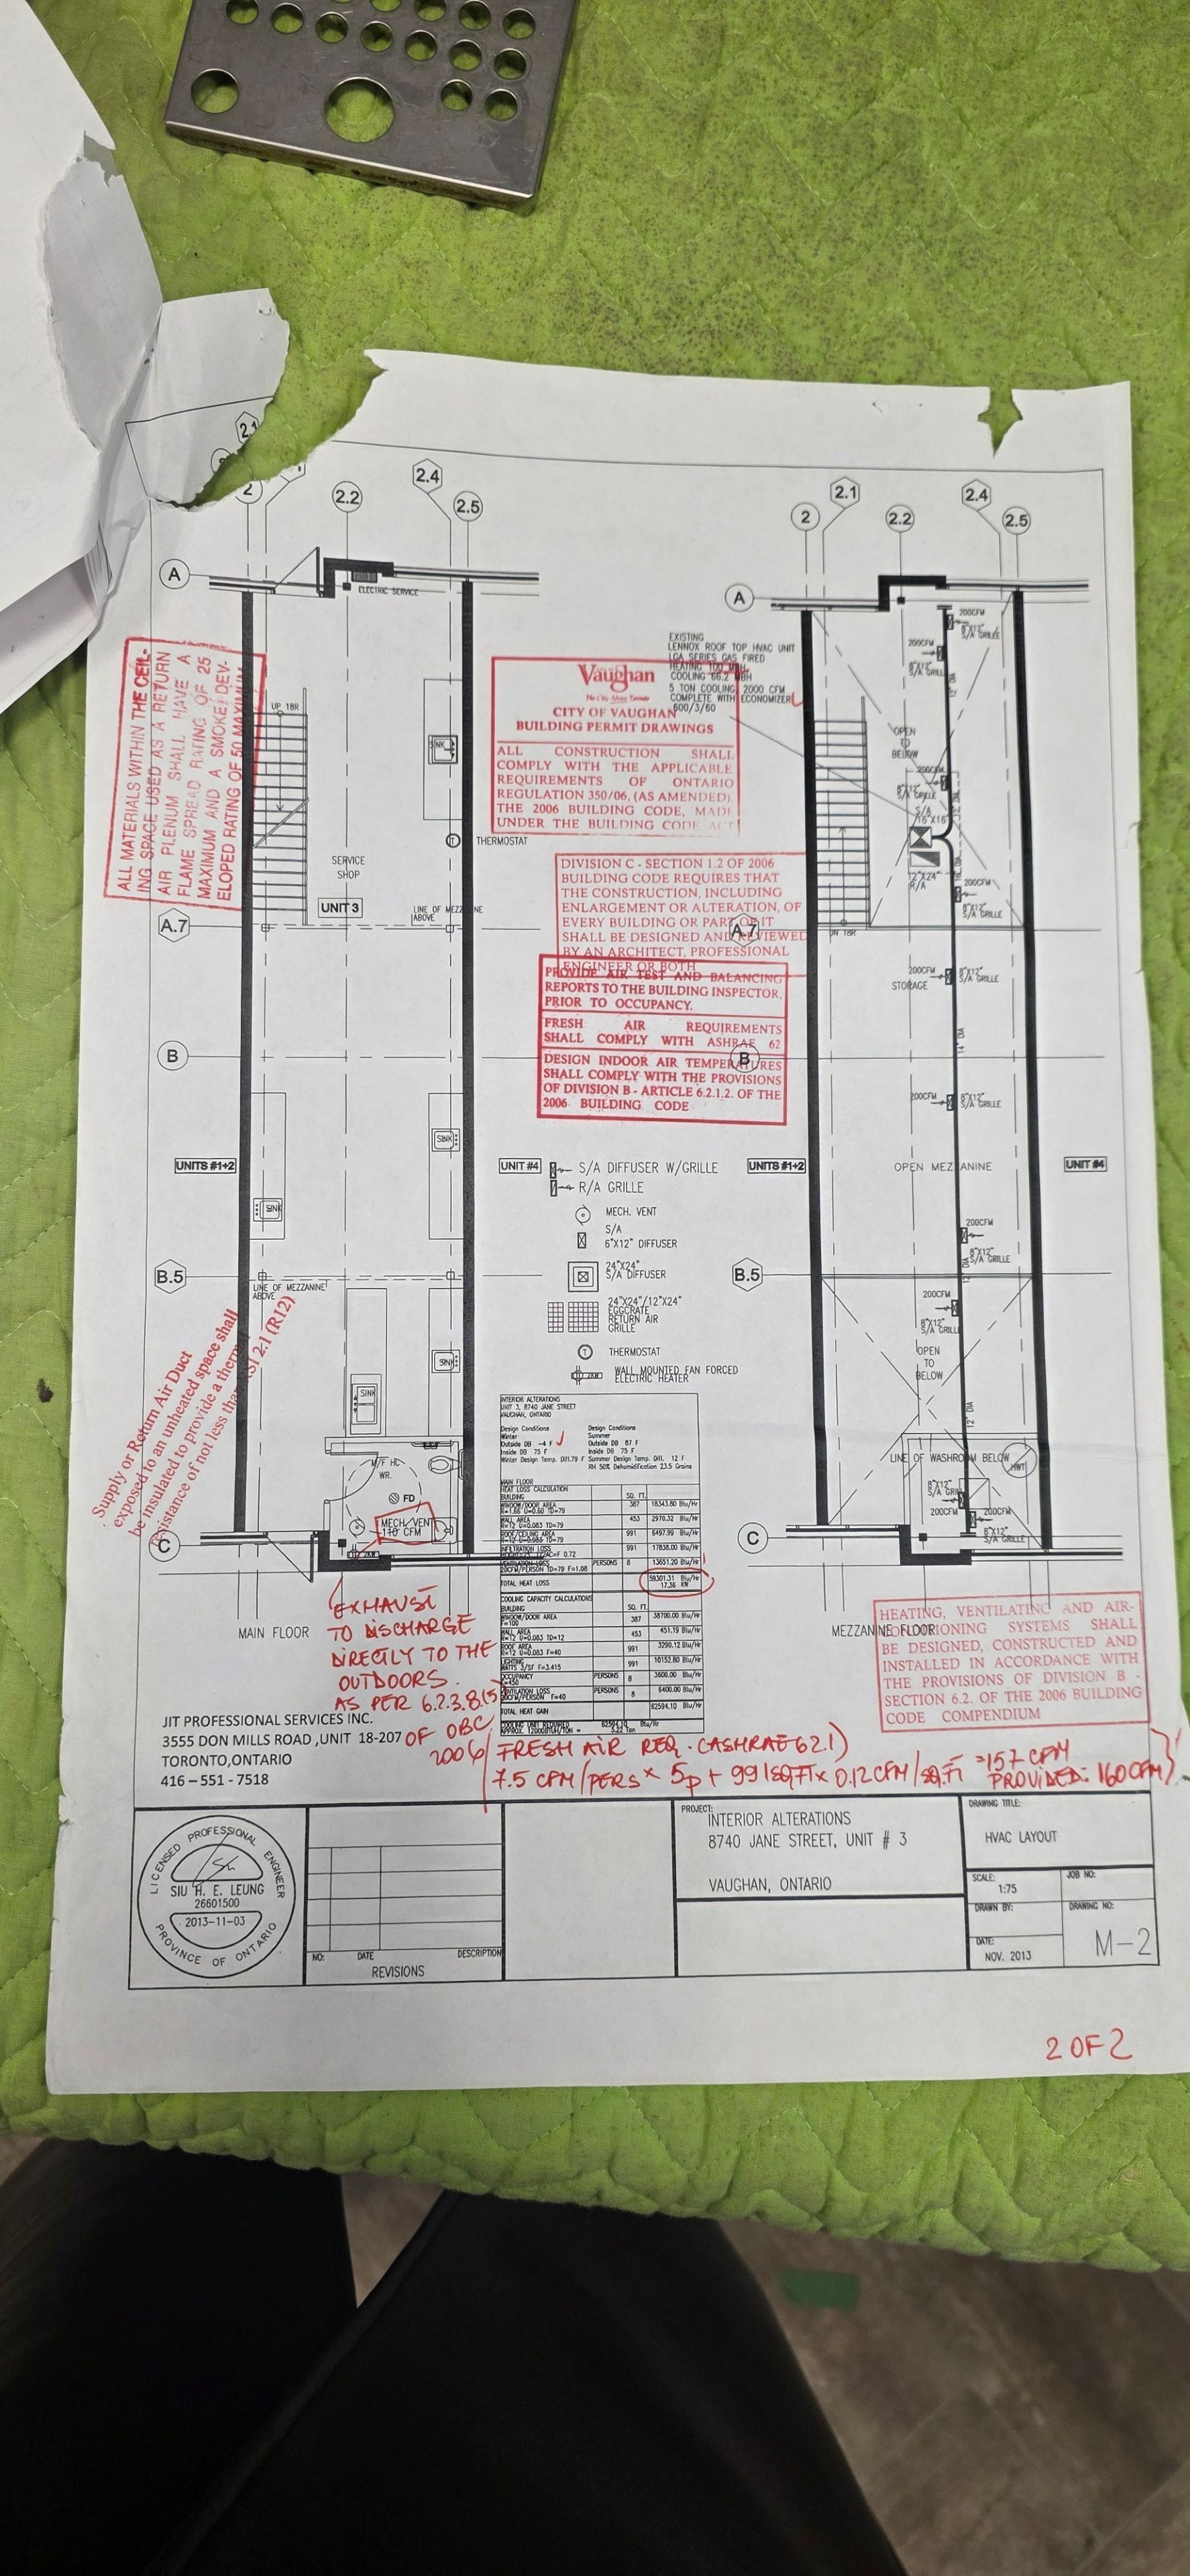 2.1
2
2.2
2.4
2.5
A
ELECTRIC SERVICE
UP 18R
SINK
T
THERMOSTAT
SERVICE
SHOP
UNIT 3
LINE OF MEZZANINE
ABOVE
A.7
B
SINK
UNITS #1+2
SINK
UNIT #4
B.5
LINE OF MEZZANINE
ABOVE
SINK
SINK
M/F HC
WR.
FD
MECH. VENT
110 CFM
C
MAIN FLOOR
ALL MATERIALS WITHIN THE CEIL-
ING SPACE USED AS A RETURN
AIR PLENUM SHALL HAVE A
FLAME SPREAD RATING OF 25
MAXIMUM AND A SMOKE DEV-
ELOPED RATING OF 50 MAXIMUM
Supply or Return Air Duct
exposed to an unheated space shall
be insulated to provide a thermal
resistance of not less than RSI 2.1 (R12)
EXHAUST
TO DISCHARGE
DIRECTLY TO THE
OUTDOORS.
AS PER 6.2.3.8.(5)
OF OBC
2006
EXISTING
LENNOX ROOF TOP HVAC UNIT
LGA SERIES GAS FIRED
HEATING 100 MBH
COOLING 66.2 MBH
5 TON COOLING 2000 CFM
COMPLETE WITH ECONOMIZER
600/3/60
Vaughan
The City Above Toronto
CITY OF VAUGHAN
BUILDING PERMIT DRAWINGS
ALL CONSTRUCTION SHALL
COMPLY WITH THE APPLICABLE
REQUIREMENTS OF ONTARIO
REGULATION 350/06, (AS AMENDED),
THE 2006 BUILDING CODE, MADE
UNDER THE BUILDING CODE ACT
DIVISION C - SECTION 1.2 OF 2006
BUILDING CODE REQUIRES THAT
THE CONSTRUCTION, INCLUDING
ENLARGEMENT OR ALTERATION, OF
EVERY BUILDING OR PART OF IT
SHALL BE DESIGNED AND REVIEWED
BY AN ARCHITECT, PROFESSIONAL
ENGINEER OR BOTH
PROVIDE AIR TEST AND BALANCING
REPORTS TO THE BUILDING INSPECTOR,
PRIOR TO OCCUPANCY.
FRESH AIR REQUIREMENTS
SHALL COMPLY WITH ASHRAE 62
DESIGN INDOOR AIR TEMPERATURES
SHALL COMPLY WITH THE PROVISIONS
OF DIVISION B - ARTICLE 6.2.1.2. OF THE
2006 BUILDING CODE
S/A DIFFUSER W/GRILLE
R/A GRILLE
MECH. VENT
S/A
6"X12" DIFFUSER
24"X24"
S/A DIFFUSER
24"X24"/12"X24"
EGGCRATE
RETURN AIR
GRILLE
T THERMOSTAT
WALL MOUNTED FAN FORCED
ELECTRIC HEATER
INTERIOR ALTERATIONS
UNIT 3, 8740 JANE STREET
VAUGHAN, ONTARIO
Design Conditions Design Conditions
Winter Summer
Outside DB -4 F Outside DB 87 F
Inside DB 75 F Inside DB 75 F
Winter Design Temp. Diff.79 F Summer Design Temp. Diff. 12 F
RH 50% Dehumidification 23.5 Grains
MAIN FLOOR
HEAT LOSS CALCULATION
BUILDING SQ. FT.
WINDOW/DOOR AREA 387 18343.80 Btu/Hr
WALL AREA 453 2970.32 Btu/Hr
R=12 U=0.083 TD=79
ROOF/CEILING AREA 991 6497.99 Btu/Hr
R=12 U=0.083 TD=79
INFILTRATION LOSS 991 17838.00 Btu/Hr
VENTILATION LOSS PERSONS 8 13651.20 Btu/Hr
20CFM/PERSON TD=79 F=1.08
TOTAL HEAT LOSS 59301.31 Btu/Hr
17.38 KW
COOLING CAPACITY CALCULATIONS
BUILDING SQ. FT.
WINDOW/DOOR AREA 387 38700.00 Btu/Hr
F=100
WALL AREA 453 451.19 Btu/Hr
R=12 U=0.083 TD=12
ROOF AREA 991 3290.12 Btu/Hr
R=12 U=0.083 F=40
LIGHTING 991 10152.80 Btu/Hr
WATTS 3/SF F=3.415
OCCUPANCY PERSONS 8 3600.00 Btu/Hr
F=450
VENTILATION LOSS PERSONS 8 6400.00 Btu/Hr
20CFM/PERSON F=40
TOTAL HEAT GAIN 62594.10 Btu/Hr
COOLING UNIT REQUIRED 62594.10 Btu/Hr
APPROX. 12000BTUH/TON = 5.22 Ton
FRESH AIR REQ. (ASHRAE 62.1)
7.5 CFM/PERS × 5p + 991SQ.FT × 0.12 CFM/SQ.FT =157 CFM
PROVIDED: 160 CFM
2
2.1
2.2
2.4
2.5
A
200CFM
8"X12"
S/A GRILLE
200CFM
8"X12"
S/A GRILL
12" DIA
OPEN
TO
BELOW
200CFM
8"X12"
S/A GRILLE
S/A
16"X16"
12"X24"
R/A
200CFM
8"X12"
S/A GRILLE
A.7
DN 18R
200CFM
8"X12"
S/A GRILLE
STORAGE
14" DIA
B
200CFM
8"X12"
S/A GRILLE
UNITS #1+2
OPEN MEZZANINE
UNIT #4
200CFM
8"X12"
S/A GRILLE
B.5
12" DIA
200CFM
8"X12"
S/A GRILL
OPEN
TO
BELOW
12" DIA
LINE OF WASHROOM BELOW
HWT
8"X12"
S/A GRILL
200CFM
200CFM
8"X12"
S/A GRILLE
C
MEZZANINE FLOOR
HEATING, VENTILATING AND AIR-
CONDITIONING SYSTEMS SHALL
BE DESIGNED, CONSTRUCTED AND
INSTALLED IN ACCORDANCE WITH
THE PROVISIONS OF DIVISION B -
SECTION 6.2. OF THE 2006 BUILDING
CODE COMPENDIUM
JIT PROFESSIONAL SERVICES INC.
3555 DON MILLS ROAD ,UNIT 18-207
TORONTO,ONTARIO
416 – 551 - 7518
LICENSED PROFESSIONAL ENGINEER
SIU H. E. LEUNG
26601500
2013-11-03
PROVINCE OF ONTARIO
NO: DATE DESCRIPTION
REVISIONS
PROJECT:
INTERIOR ALTERATIONS
8740 JANE STREET, UNIT # 3
VAUGHAN, ONTARIO
DRAWING TITLE:
HVAC LAYOUT
SCALE:
1:75
JOB NO:
DRAWN BY:
DRAWING NO:
M-2
DATE:
NOV. 2013
2 OF 2